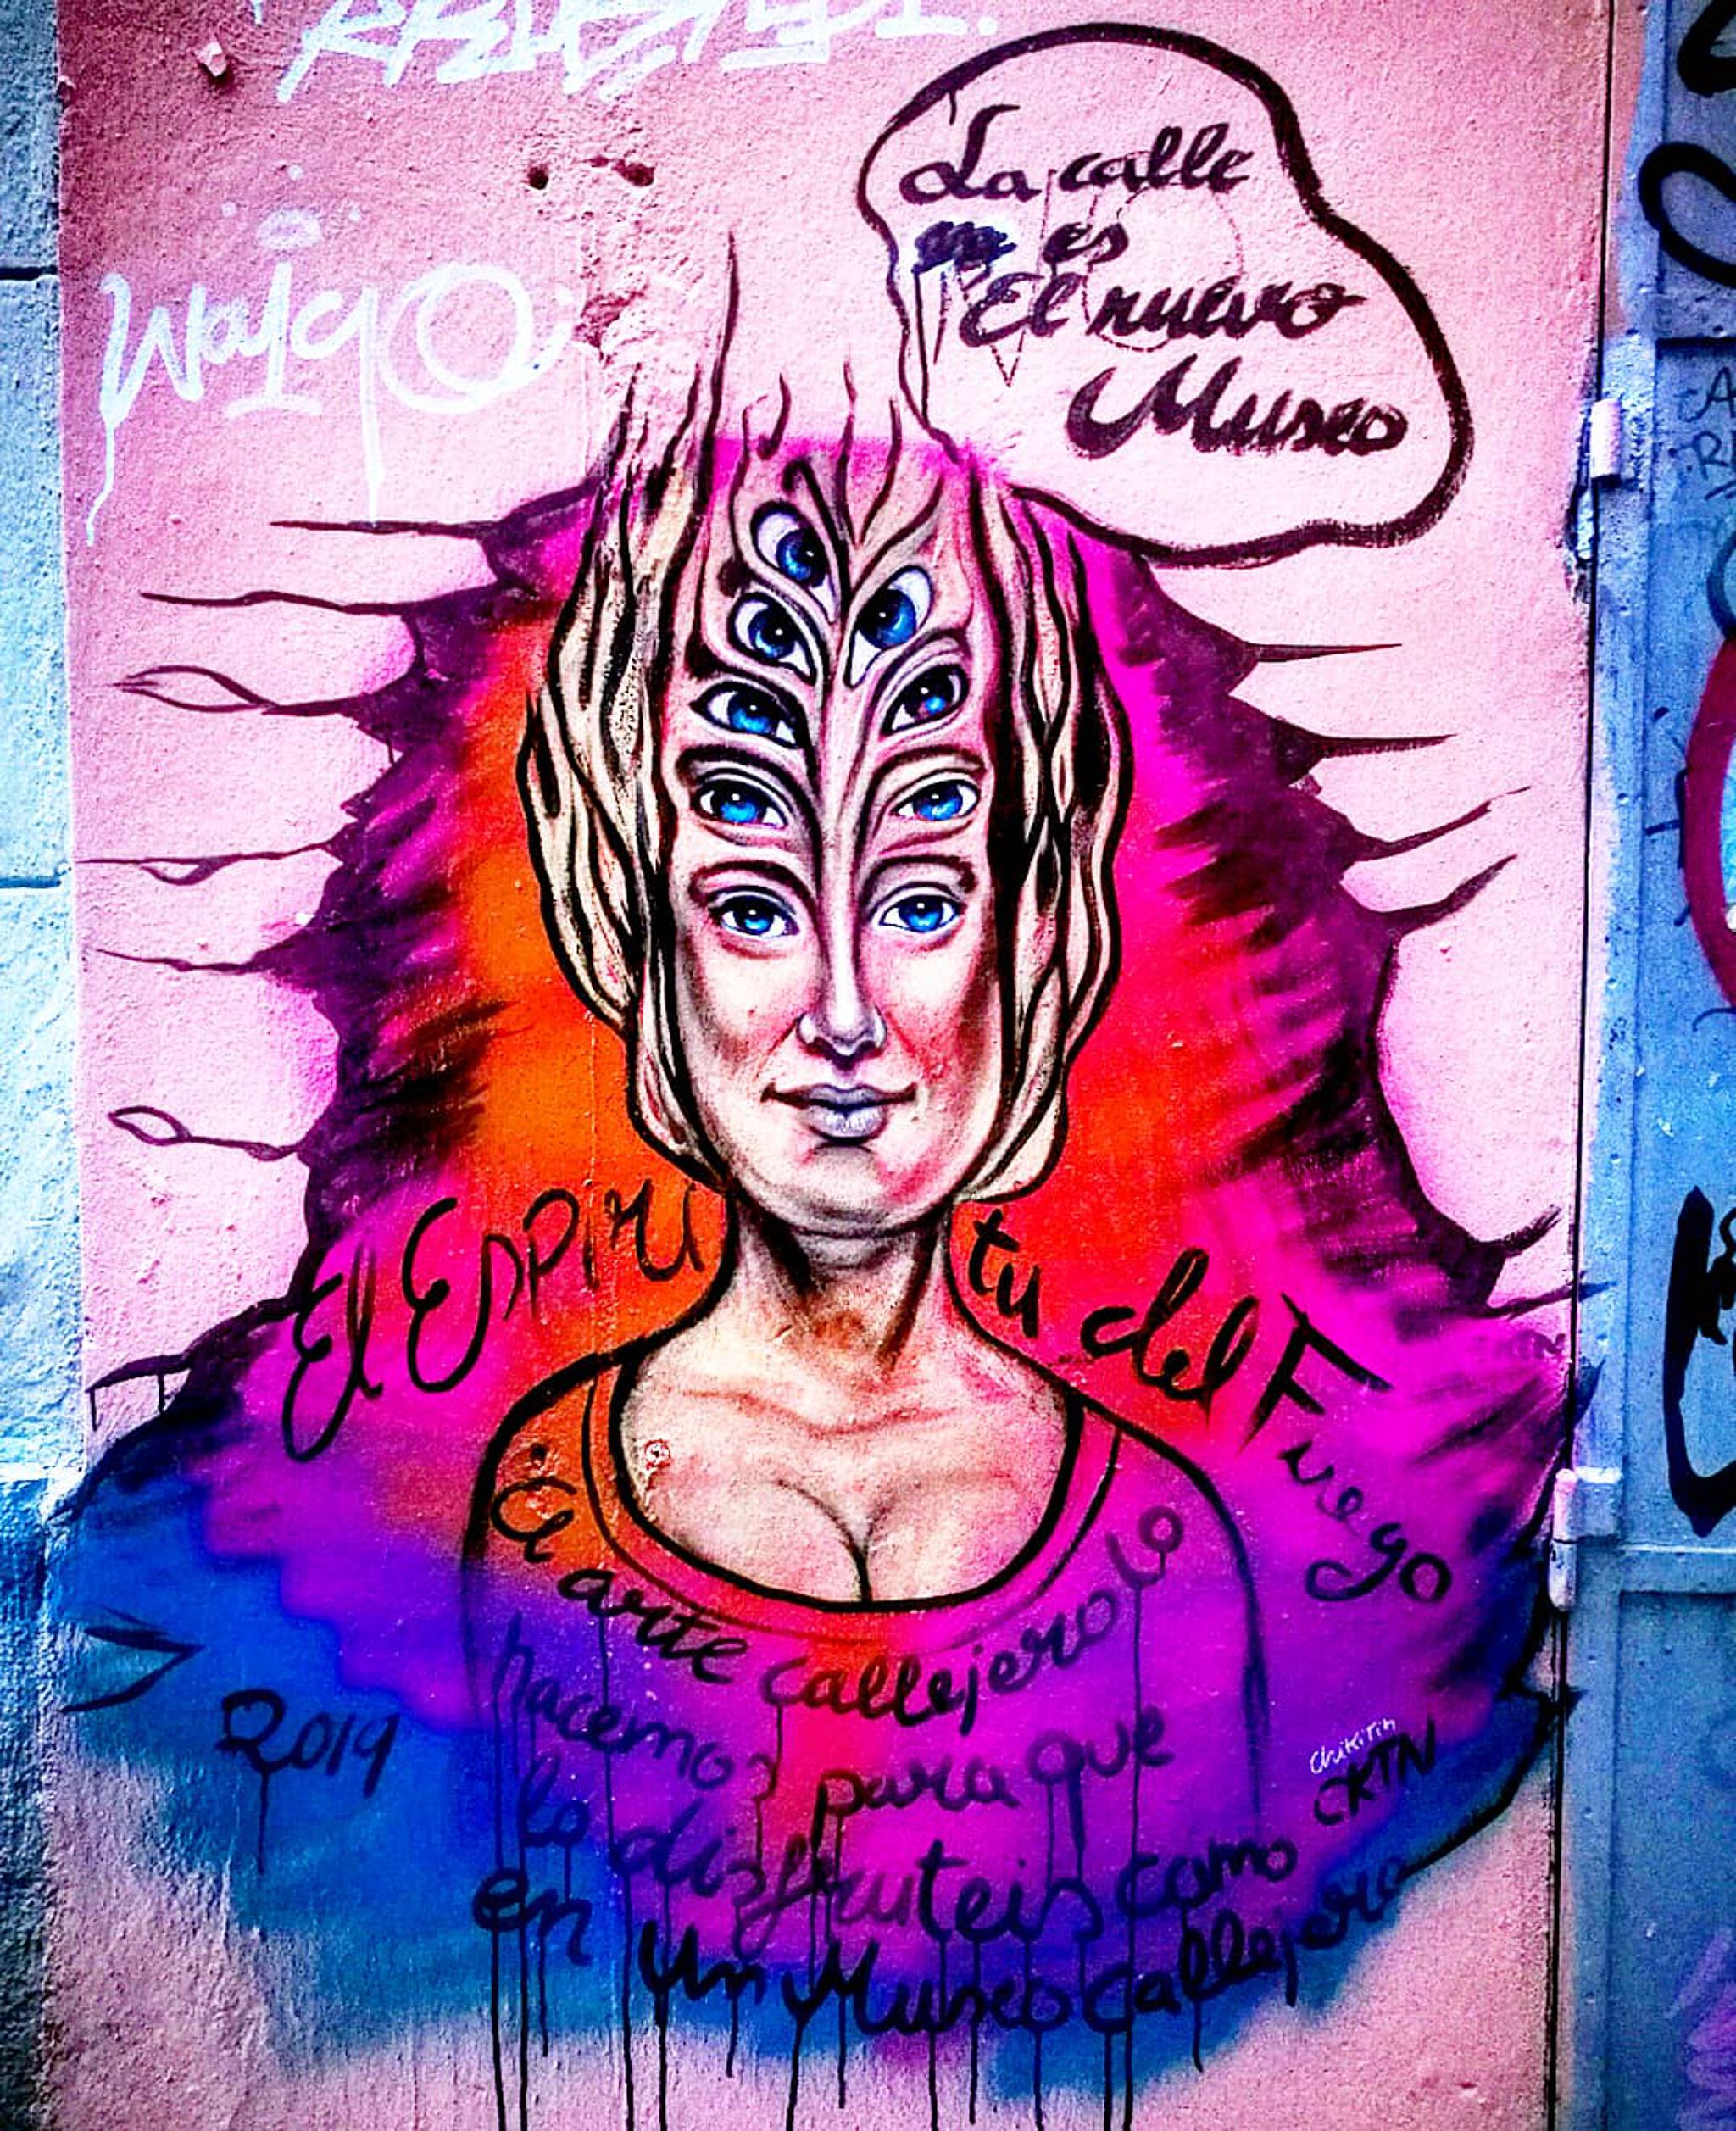 La calle
es
El nuevo
Museo
El Espiritu del Fuego
El arte callejero lo
hacemos para que
lo disfruteis como
en un Museo callejero
2019
Chikitin
CKTN